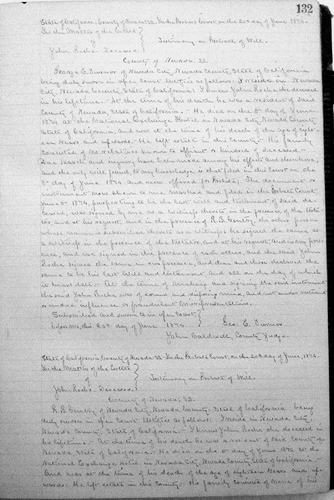 132
State of California, County of Nevada, SS. In the Probate Court, on the 23d day of June 1874.
In the Matter of the Estate
of
John Roche Deceased
Testimony on Probate of Will.
County of Nevada, SS.
George E. Turner of Nevada City, Nevada County, State of California
being duly sworn in open Court testifies as follows: I reside in Nevada
City, Nevada County, State of California. I knew John Roche the deceased
in his lifetime. At the time of his death he was a resident of said
County of Nevada, State of California. He died on the day of June
1874 at the National Exchange Hotel in Nevada City, Nevada County
State of California, and was at the time of his death of the age of
years and upwards. He left estate in this County. His family
consisted of no relatives known to
search and inquiry have been made among his effects and
and the only will found to my knowledge is that filed in this Court on the
day of June 1874 and now offered for Probate. The document or
instrument now shown to me, marked and filed in the Probate Court
June 1874, purporting to be the last will and testament of said
deceased, was signed by me as a witness thereto in the presence of the
and at his request, and in the presence of R. B. Gentry, the other person
whose name is subscribed thereto as a witness; he signed the same as
a witness in the presence of the testator, and at his request, and in my
presence, and we signed in the presence of each other, and the said John
Roche signed the same in our presence, and then and there declared the
same to be his last Will and testament, and all on the day of which
it bears date. At the time of making and signing the said instrument
the said John Roche was of sound and disposing mind, and not under restraint
undue influence or fraudulent misrepresentation.
Subscribed and sworn to in open Court
upon this 23d day of June 1874.
Geo. E. Turner
John Caldwell County Judge
State of California, County of Nevada SS. In the Probate Court, on the 23d day of June, 1874.
In the Matter of the Estate
of
John Roche, Deceased.
Testimony on Probate of Will.
County of Nevada, SS.
R. B. Gentry of Nevada City, Nevada County, State of California being
duly sworn in open Court testifies as follows: I reside in Nevada
City, Nevada County, State of California. I knew John Roche the deceased in
his lifetime. At the time of his death he was a resident of said County of
Nevada, State of California. He died on the day of June 1874 at the
National Exchange Hotel in Nevada City, Nevada County, State of California
and was at the time of his death of the age of years and
upwards. He left estate in this County. His family consisted of none of his